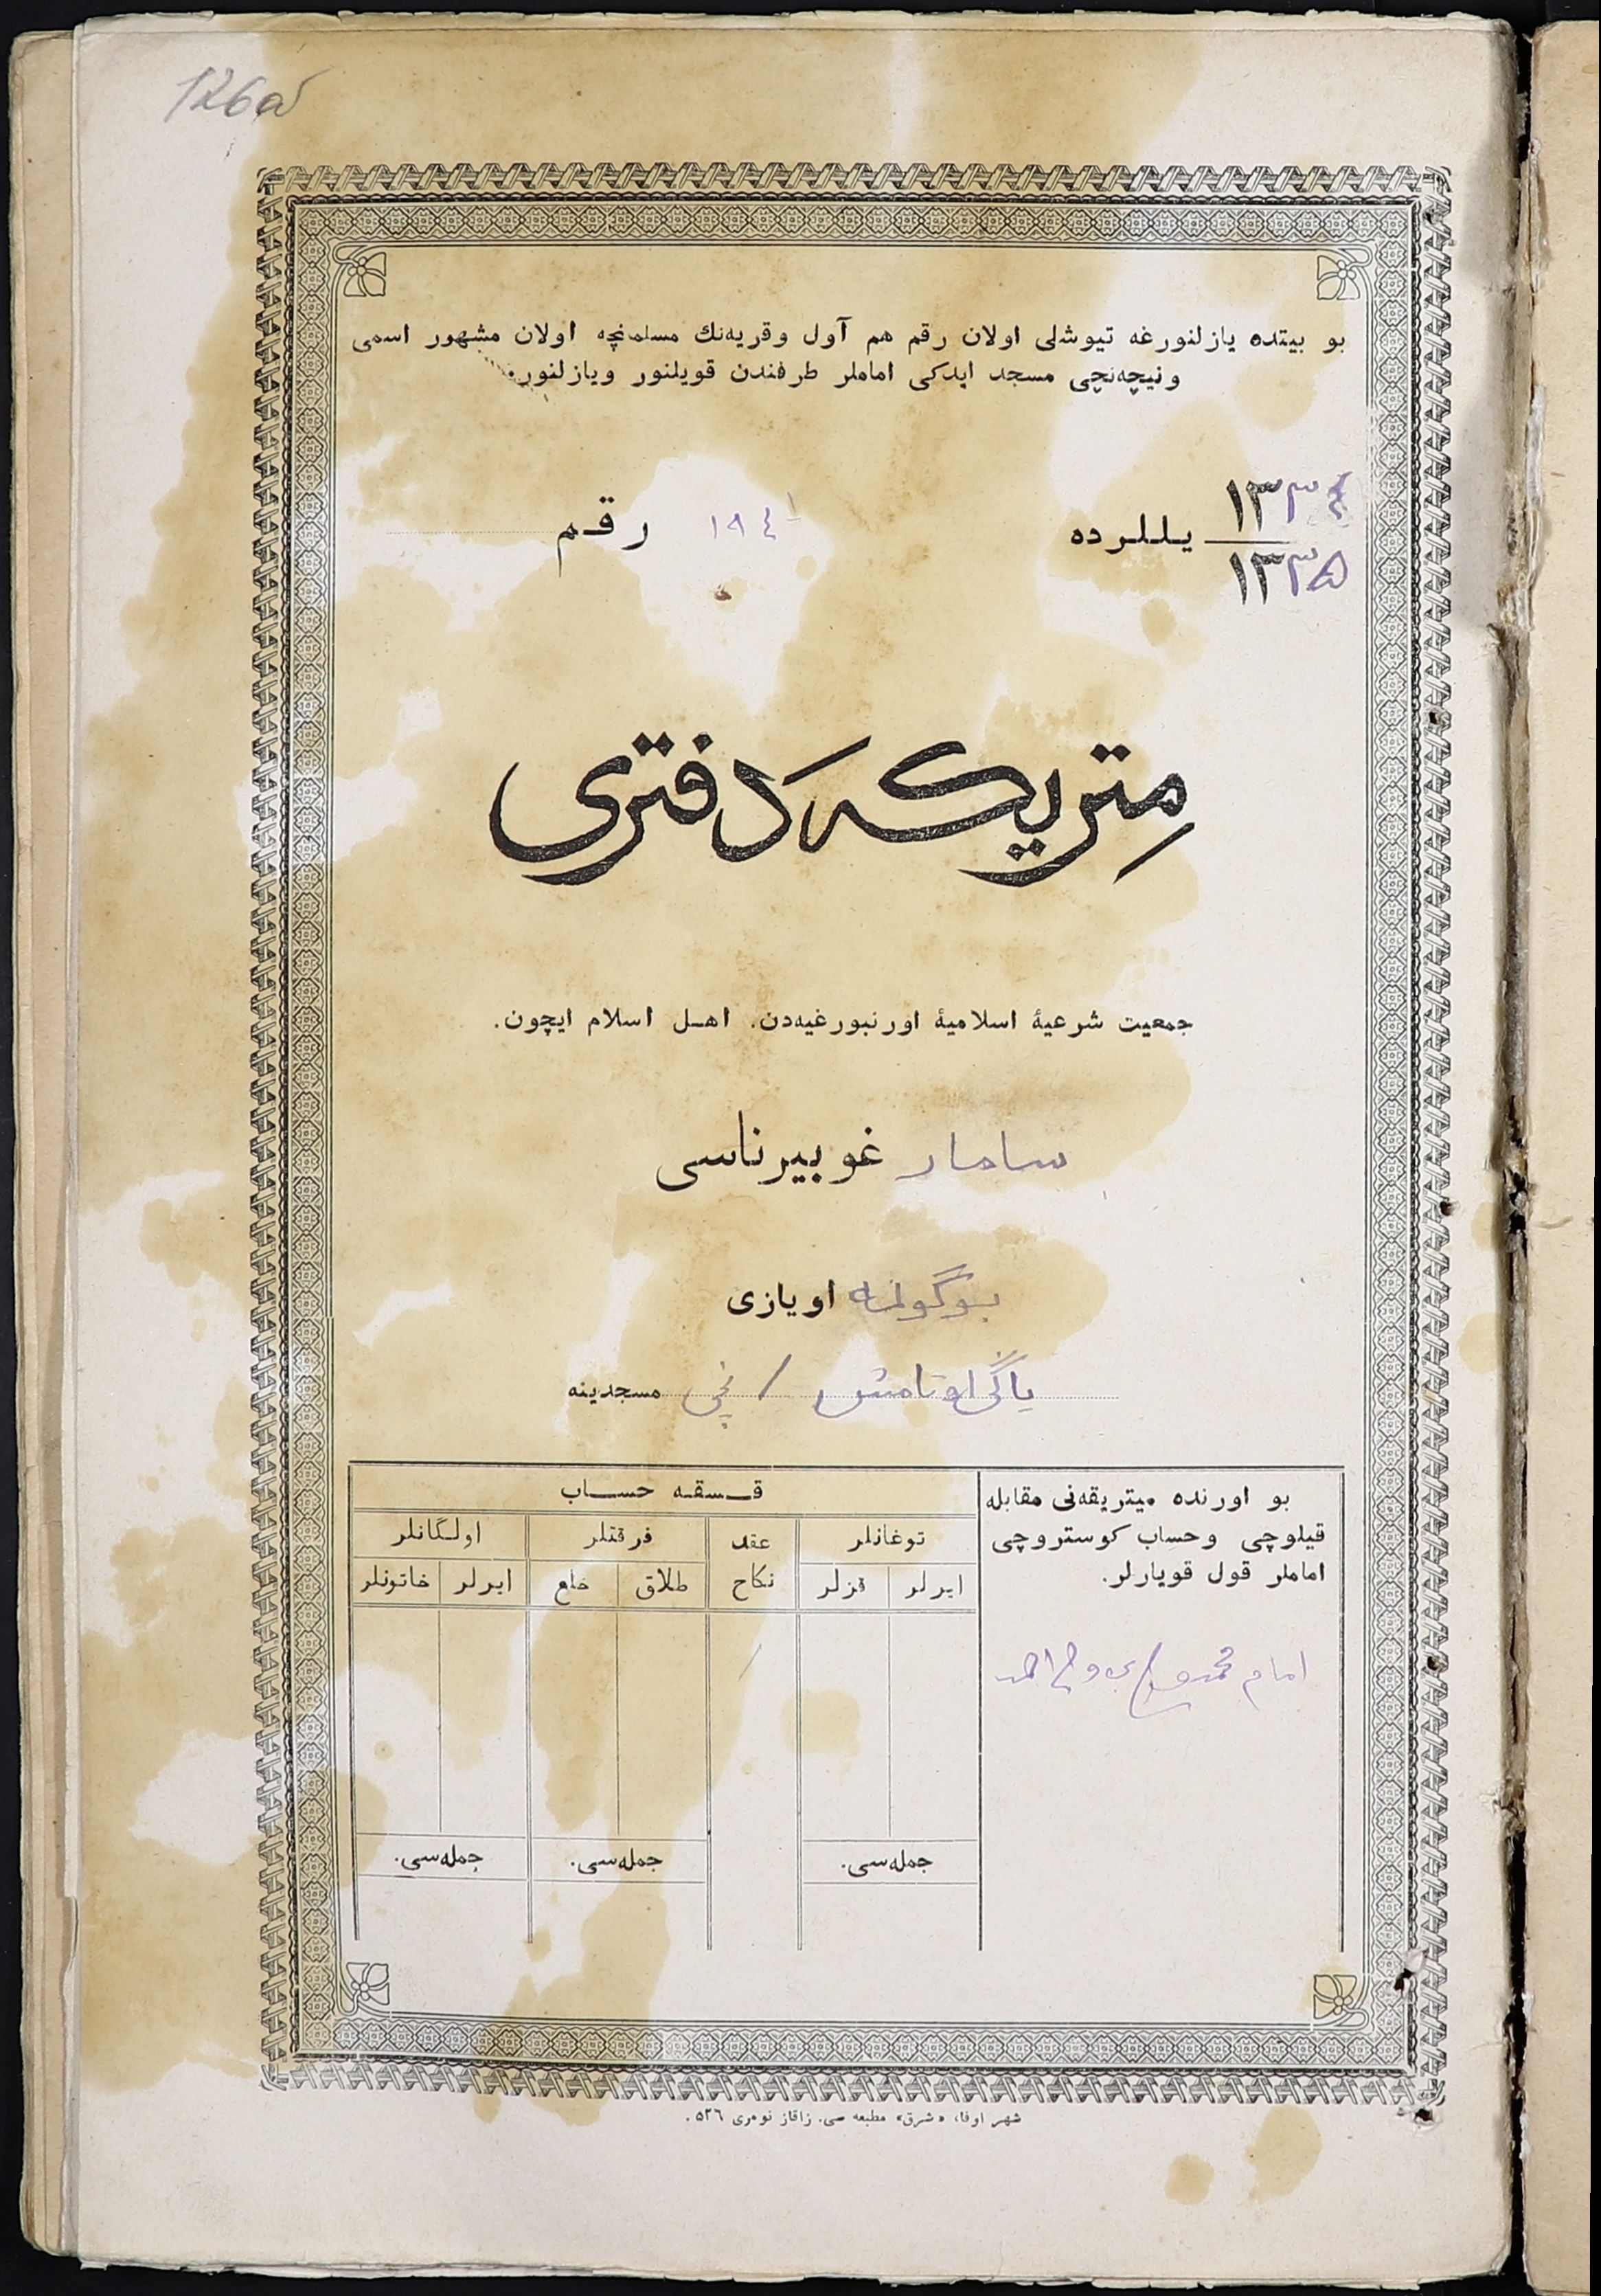 126а
بو بیتده یازلنورغه تیوشلی اولان رقم هم آول وقریه‌نك مسلمانچه اولان مشهور اسمی
ونیچه‌نچی مسجد ایدکی اماملر طرفندن قویلنور ویازلنور.
۱۳۳۴
۱۳۳۵
یللرده
۱۹٤۱ رقم
مِتریکه دفتری
جمعیت شرعیهٔ اسلامیهٔ اورنبورغیه‌دن. اهل اسلام ایچون.
سامار غوبیرناسی
بوگولمه اویازی
یاڭی اوتامش ۱ نچی مسجدینه
بو اورنده میتریقه‌نی مقابله
قیلوچی وحساب کوستروچی
اماملر قول قویارلر.
امام محمد
قسقه حساب
توغانلر
عقد نکاح
فرقتلر
اولگانلر
ایرلر
قزلر
طلاق
خلع
ایرلر
خاتونلر
جمله‌سی.
جمله‌سی.
جمله‌سی.
شهر اوفا، «شرق» مطبعه سی. زاقاز نومری ۵۲٦.